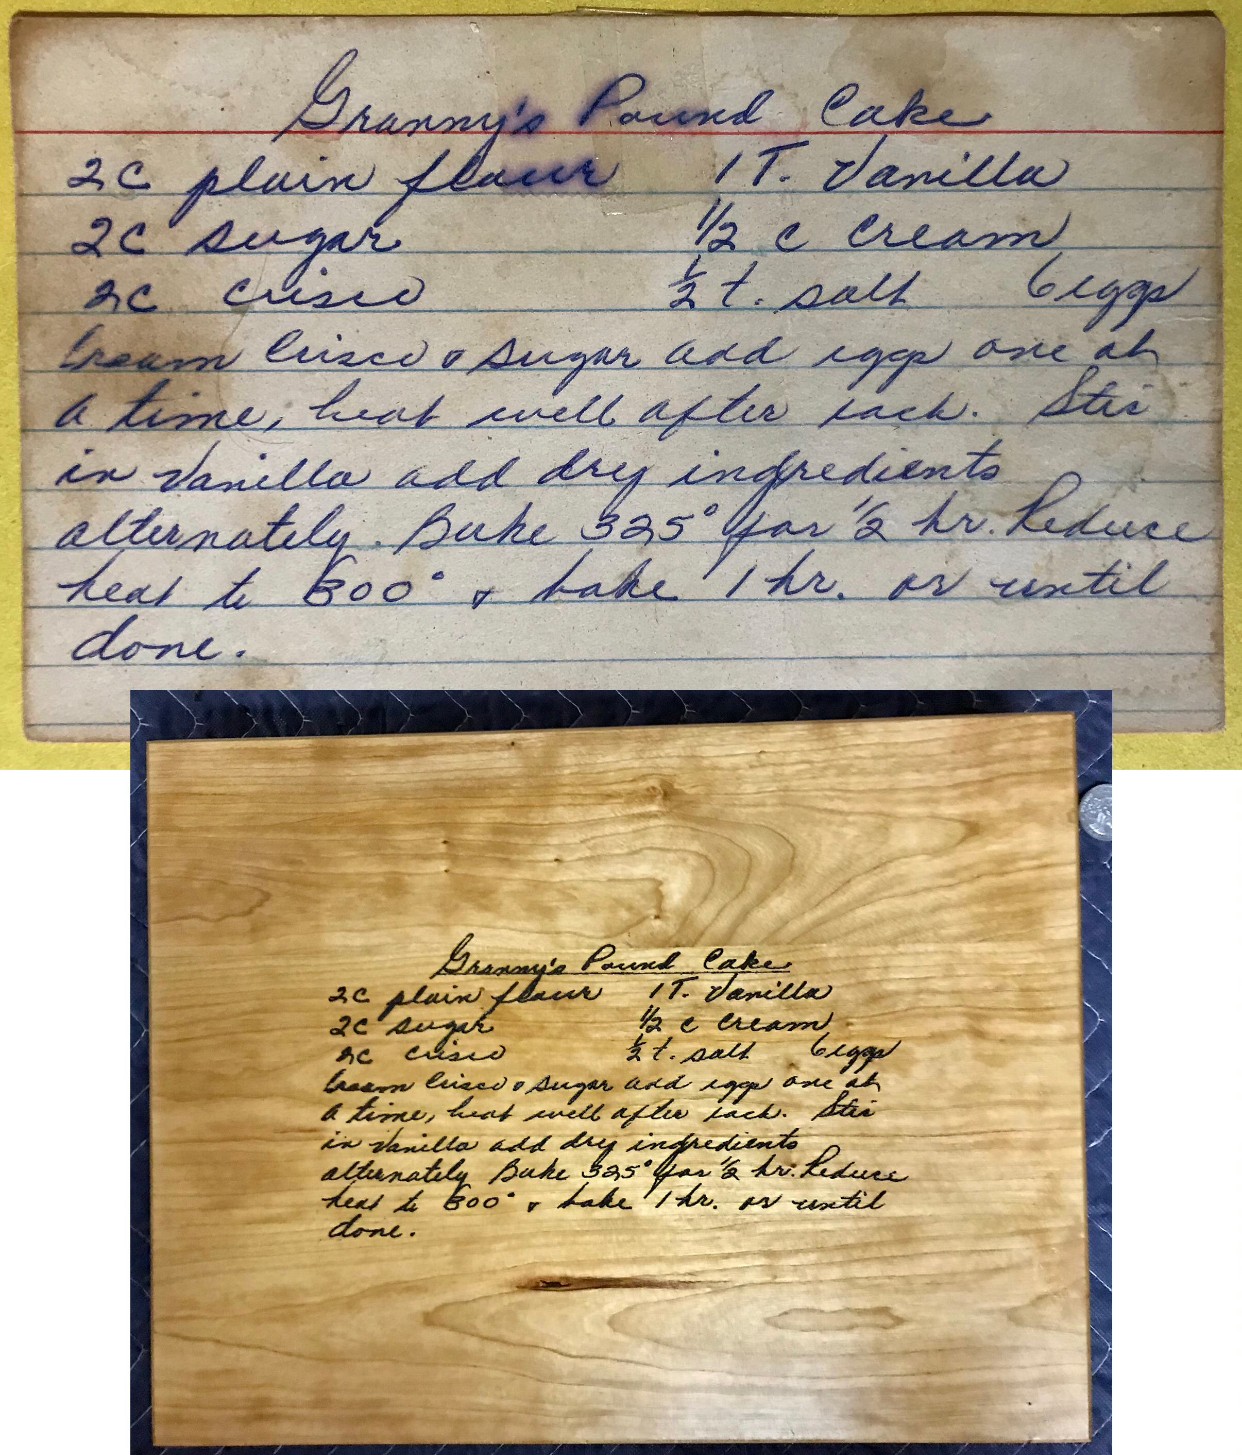 Granny's Pound Cake
2C plain flour 1 T. Vanilla
2C sugar 1/2 c cream
2C Crisco 1/2 t. salt 6 eggs
Cream Crisco & sugar add eggs one at
a time, beat well after each. Stir
in Vanilla add dry ingredients
alternately. Bake 325° for 1/2 hr. Reduce
heat to 300° & bake 1 hr. or until
done.
Granny's Pound Cake
2C plain flour 1 T. Vanilla
2C sugar 1/2 c cream
2C Crisco 1/2 t. salt 6 eggs
Cream Crisco & sugar add eggs one at
a time, beat well after each. Stir
in Vanilla add dry ingredients
alternately Bake 325° for 1/2 hr. Reduce
heat to 300° & bake 1 hr. or until
done.